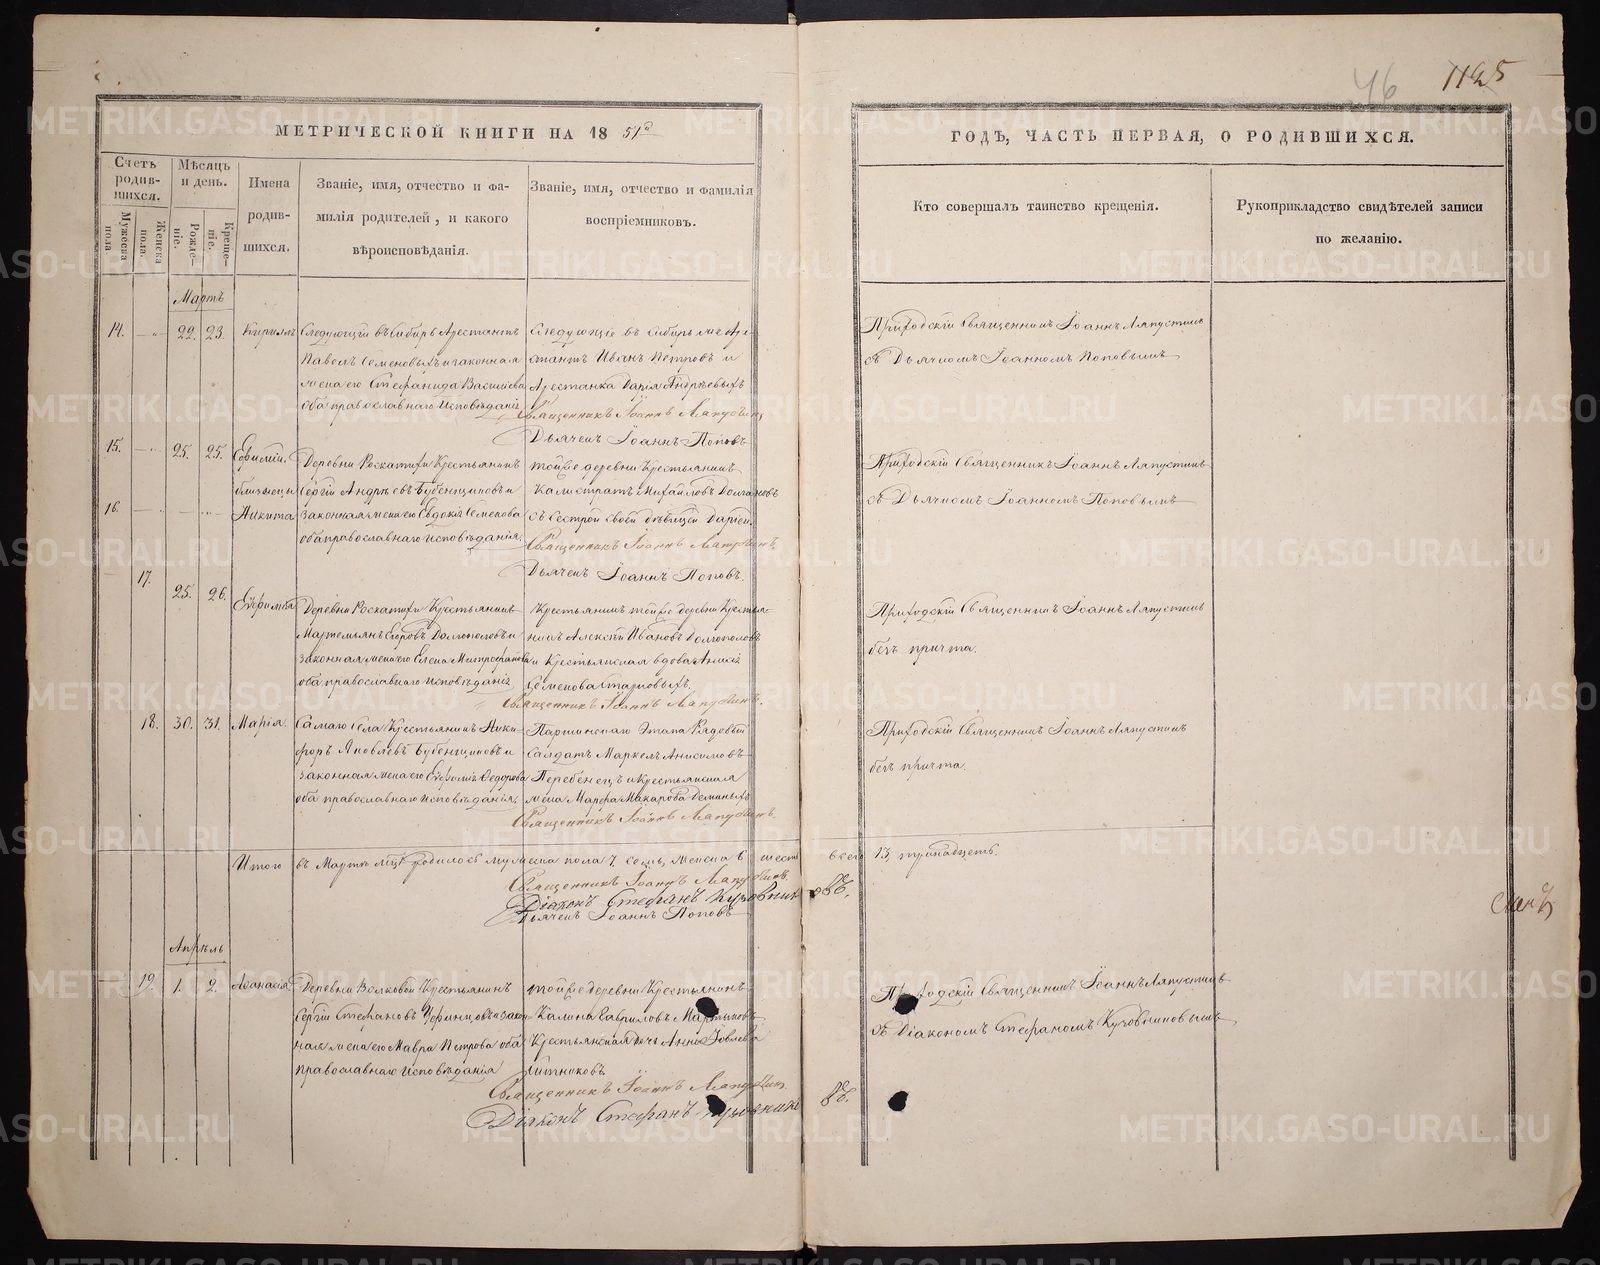 46
1125
МЕТРИЧЕСКОЙ КНИГИ НА 18 51й
Счетъ родив-шихся.
Мужеска пола
Женска пола.
Мѣсяцъ и день.
Рожде-ніе.
Креще-ніе.
Имена родив-шихся.
Званіе, имя, отчество и фа-
милія родителей, и какого
вѣроисповѣданія.
Званіе, имя, отчество и фамилія
воспріемниковъ.
ГОДЪ, ЧАСТЬ ПЕРВАЯ, О РОДИВШИХСЯ.
Кто совершалъ таинство крещенія.
Рукоприкладство свидѣтелей записи
по желанію.
Мартъ
14. 22. 23. Кириллъ
Следующій въ Сибирь Арестантъ
Павелъ Семеновыхъ и законная
жена его Стефанида Васильева
оба православнаго исповѣданія
Следующіе въ Сибирь же Аре-
стантъ Иванъ Петровъ и
Арестанка Дарія Андреевыхъ
Священникъ Іоаннъ Ляпустинъ
Дьячекъ Іоаннъ Поповъ
Приходскій Священникъ Іоаннъ Ляпустинъ
съ Дьячкомъ Іоанномъ Поповымъ
15. 25. 25. Ефимій
близнецы
16. Никита
Деревни Роскатихи Крестьянинъ
Сергій Андреевъ Бубенщиковъ и
законная жена его Евдокія Семенова
оба православнаго исповѣданія.
тойже деревни Крестьянинъ
Калистратъ Михайловъ Долгановъ
съ сестрой своей дѣвицей Даріей.
Священникъ Іоаннъ Ляпустинъ
Дьячекъ Іоаннъ Поповъ.
Приходскій Священникъ Іоаннъ Ляпустинъ
съ Дьячкомъ Іоанномъ Поповымъ
17. 25. 26. Евфимія
Деревни Роскатихи Крестьянинъ
Мартемьянъ Егоровъ Долгополовъ и
законная жена его Елена Митрофанова
оба православнаго исповѣданія
Крестьянинъ тойже деревни Крестья-
нинъ Алексѣй Ивановъ Долгополовъ
и Крестьянская вдова
Семенова Старковыхъ.
Священникъ Іоаннъ Ляпустинъ.
Приходскій Священникъ Іоаннъ Ляпустинъ
безъ причта.
18. 30. 31. Марія
Самаго села Крестьянинъ Ники-
форъ Яковлевъ Бубенщиковъ и
законная жена его Евфимія Федорова
оба православнаго исповѣданія.
Этапа Рядовый
Салдатъ Маркелъ Анисимовъ
Перебенецъ и Крестьянская
жена Марфа Макарова Деминыхъ
Священникъ Іоаннъ Ляпустинъ.
Приходскій Священникъ Іоаннъ Ляпустинъ
безъ причта.
Итого въ Мартѣ мцѣ родилось мужеска пола 7. семь, женска 6 шесть всего 13, тринадцеть.
Священникъ Іоаннъ Ляпустинъ.
Діаконъ Стефанъ Кузовниковъ.
Дьячекъ Іоаннъ Поповъ
Апрѣль
19. 1. 2. Аѳанасія
Деревни Волковой Крестьянинъ
Сергій Стефановъ и закон-
ная жена его Мавра Петрова оба
православнаго исповѣданія
тойже деревни Крестьянинъ
Калина Гавриловъ Мартьяновъ
Крестьянская дочь Анна Іовлева
Священникъ Іоаннъ Ляпустинъ.
Діаконъ Стефанъ Кузовниковъ.
Приходскій Священникъ Іоаннъ Ляпустинъ
съ Діакономъ Стефаномъ Кузовниковымъ
METRIKI.GASO-URAL.RU